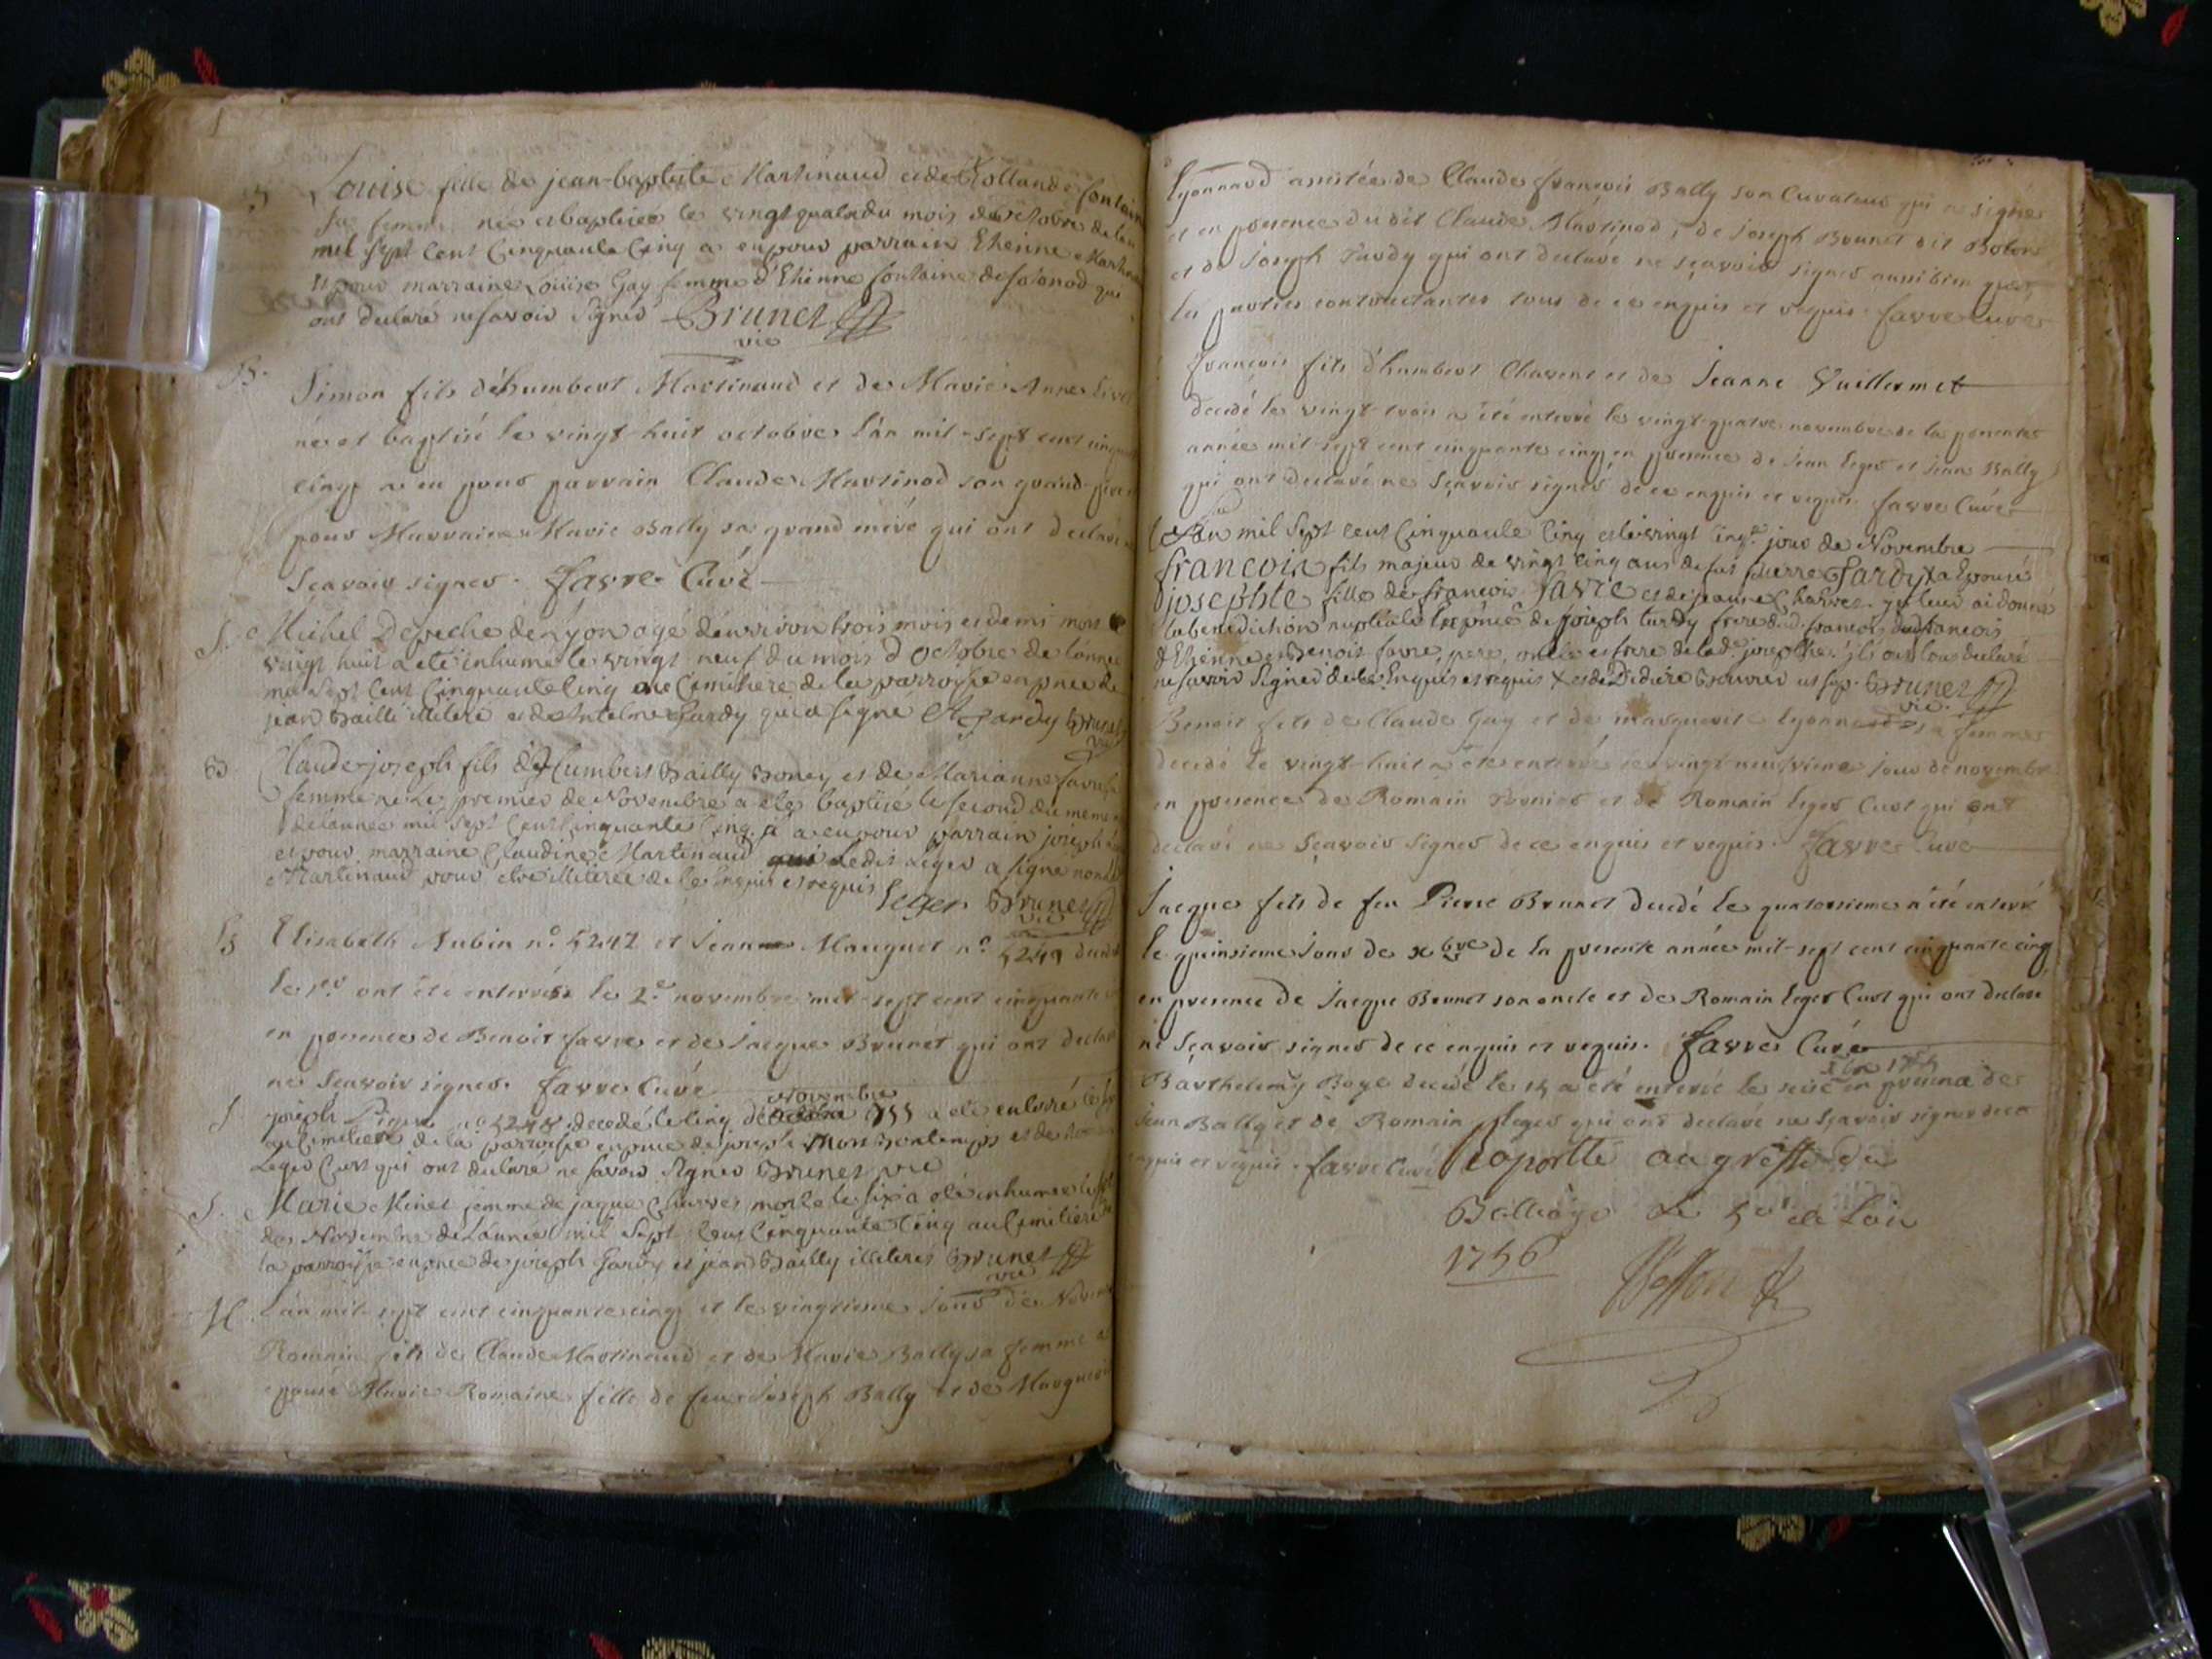 Louise fille de jean-baptiste Martinaud et de Rollande fontain
sa femme née et baptisée le vingt quatre du mois d'octobre de l'an
mil sept cent Cinquante Cinq a eu pour parrain Etienne Martin
et pour marraine Louise Gay femme d'Etienne fontaine de qui
ont declaré ne savoir signer Brunet
vic
B.
Simon fils d'humbert Martinaud et de Marie Anne
né et baptisé le vingt-huit octobre l'an mil-sept cent cinquan
cinq a eu pour parrain Claude Martinod son grand-pere
pour Marraine Marie Bally sa grand mére qui ont declaré
sçavoir signer. favre Curé
S. Michel de lyon agé d'environ trois mois et demi mort le
vingt huit a eté inhumé le vingt-neuf du mois d'octobre de l'année
mil sept cent Cinquante Cinq au Cimitiere de la parroisse en pnce de
jean Bailli illiteré et d'Antelme Gardy qui a signé A Gardy Brunet
vic
B Claude-joseph fils d'Humbert Bailly Boney et de Marianne favre sa
femme né le premier de Novembre a eté baptisé le second du meme
de l'année mil sept Cent Cinquante Cinq. il a eu pour parrain joseph
et pour marraine Claudine Martinaud qui Ledit Leger a signé non la
Martinaud pour etre illiterée de ce Enquis et requis leger Brunet
vic
S Elisabeth Aubin n.° 5242 et Jeanne Mauguet n.° 5249
le 1er ont été enterrées le 2.e novembre mil-sept cent cinquante
en presence de Benoit favre et de Jacque Brunet qui ont declaré
ne sçavoir signer. favre Curé
novembre
S joseph n.° 5248 decedé le cinq de octobre 1755 a eté enterré le
au Cimitiere de la parroisse en pnce de joseph Mon et de
Leger Curt qui ont declaré ne savoir signer Brunet vic
S. Marie Minet femme de jaque Charves morte le six a eté inhumée le
de Novembre de l'année mil sept Cent Cinquante Cinq au Cimitiere de
la parroisse en pnce de joseph Gardy et jean Bailly illiterés Brunet
vic
M. L'an mil-sept cent cinquante cinq et le vingtieme jour de Novem
Romain fils de Claude Martinaud et de Marie Bally sa femme a
epousé Marie Romaine fille de feu Joseph Bally et de Marguerite
Lyonnard assistée de Claude françois Bally son Curateur qui a signé
et en presence du dit Claude Martinod, de Joseph Brunet dit
et de Joseph Tardy qui ont declaré ne sçavoir signer aussi bien que
les parties contractantes tous de ce enquis et requis. favre Curé
françois fils d'humbert Chavent et de Jeanne Vuillermet
decedé le vingt-trois a été enterré le vingt-quatre novembre de la presente
année mil-sept cent cinquante cinq en presence de Jean Leger et Jean Bally
qui ont declaré ne sçavoir signer de ce enquis et requis. favre Curé
L'an mil sept cent Cinquante Cinq et le vingt Cinq.e jour de Novembre
francois fils majeur de vingt cinq ans de feu pierre Tardy x a Epousé
josephte fille de francois favre et de jeanne Charves. je leur ai donné
la benediction nuptiale En pnce de joseph tardy frere dud. francois
d'Etienne et Benoit favre, pere, oncle et frere de lad.e josephte. ils ont tous declaré
ne savoir signer de ce Enquis et requis x et de Didiere ut sup. Brunet
vic.
Benoit fils de Claude Gay et de marguerite lyonnard sa femme
decedé le vingt-huit a été enterré le vingt neuvieme jour de novembre
en presence de Romain et de Romain Leger Curt qui ont
declaré ne sçavoir signer de ce enquis et requis. favre Curé
Jacque fils de feu Pierre Brunet decedé le quatorzieme a été enterré
le quinsieme jour de xbre de la presente année mil-sept cent cinquante cinq
en presence de Jacque Brunet son oncle et de Romain Leger Curt qui ont declaré
ne sçavoir signer de ce enquis et requis. favre Curé
xbre 1755
Barthelemy Boye decedé le 15 a été enterré le seise en presence de
Jean Bally et de Romain Leger qui ont declaré ne sçavoir signer de ce
enquis et requis. favre Curé Raportté au greffe du
Balliage Le
1756